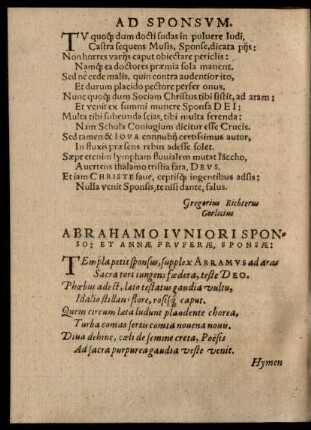 AD SPONSVM.
TV quoq; dum docti sudas in puluere ludi,
Castra sequens Musis, Sponse, dicata pijs:
Non horres varijs caput obiectare periclis:
Namq; ea doctores præmia sola manent.
Sed ne cede malis, quin contra audentior ito,
Et durum placido pectore perfer onus.
Nunc quoq; dum Sociam Christus tibi sistit, ad aram:
Et venit ex summi munere Sponsa DEI:
Multa tibi subeunda scias, tibi multa ferenda:
Nam Schola Coniugium dicitur esse Crucis.
Sed tamen & IOVA connubij certissimus autor,
In fluxis præsens rebus adesse solet.
Sæpe etenim lympham fluuialem mutat Iaccho,
Auertens thalamo tristia fata, DEVS.
Et iam CHRISTE faue, ceptisq; ingentibus adsis:
Nulla venit Sponsis, te nisi dante, salus.
Gregorius Richterus
Gorlicius
ABRAHAMO IVNIORI SPON-
SO; ET ANNÆ PRVFERÆ, SPONSÆ:
TEmpla petit sponsus, supplex ABRAMVS ad aras
Sacra tori iungens fœdera, teste DEO.
Phœbus adest, lato testatus gaudia vultu,
Idalio stillans flore, rosisq; caput.
Quem circum læta ludunt plaudente chorea,
Turba comas sertu comta nouena nouu.
Diua dehinc, cœli de semine creta, Poësis
Ad sacra purpurea gaudia veste venit.
Hymen